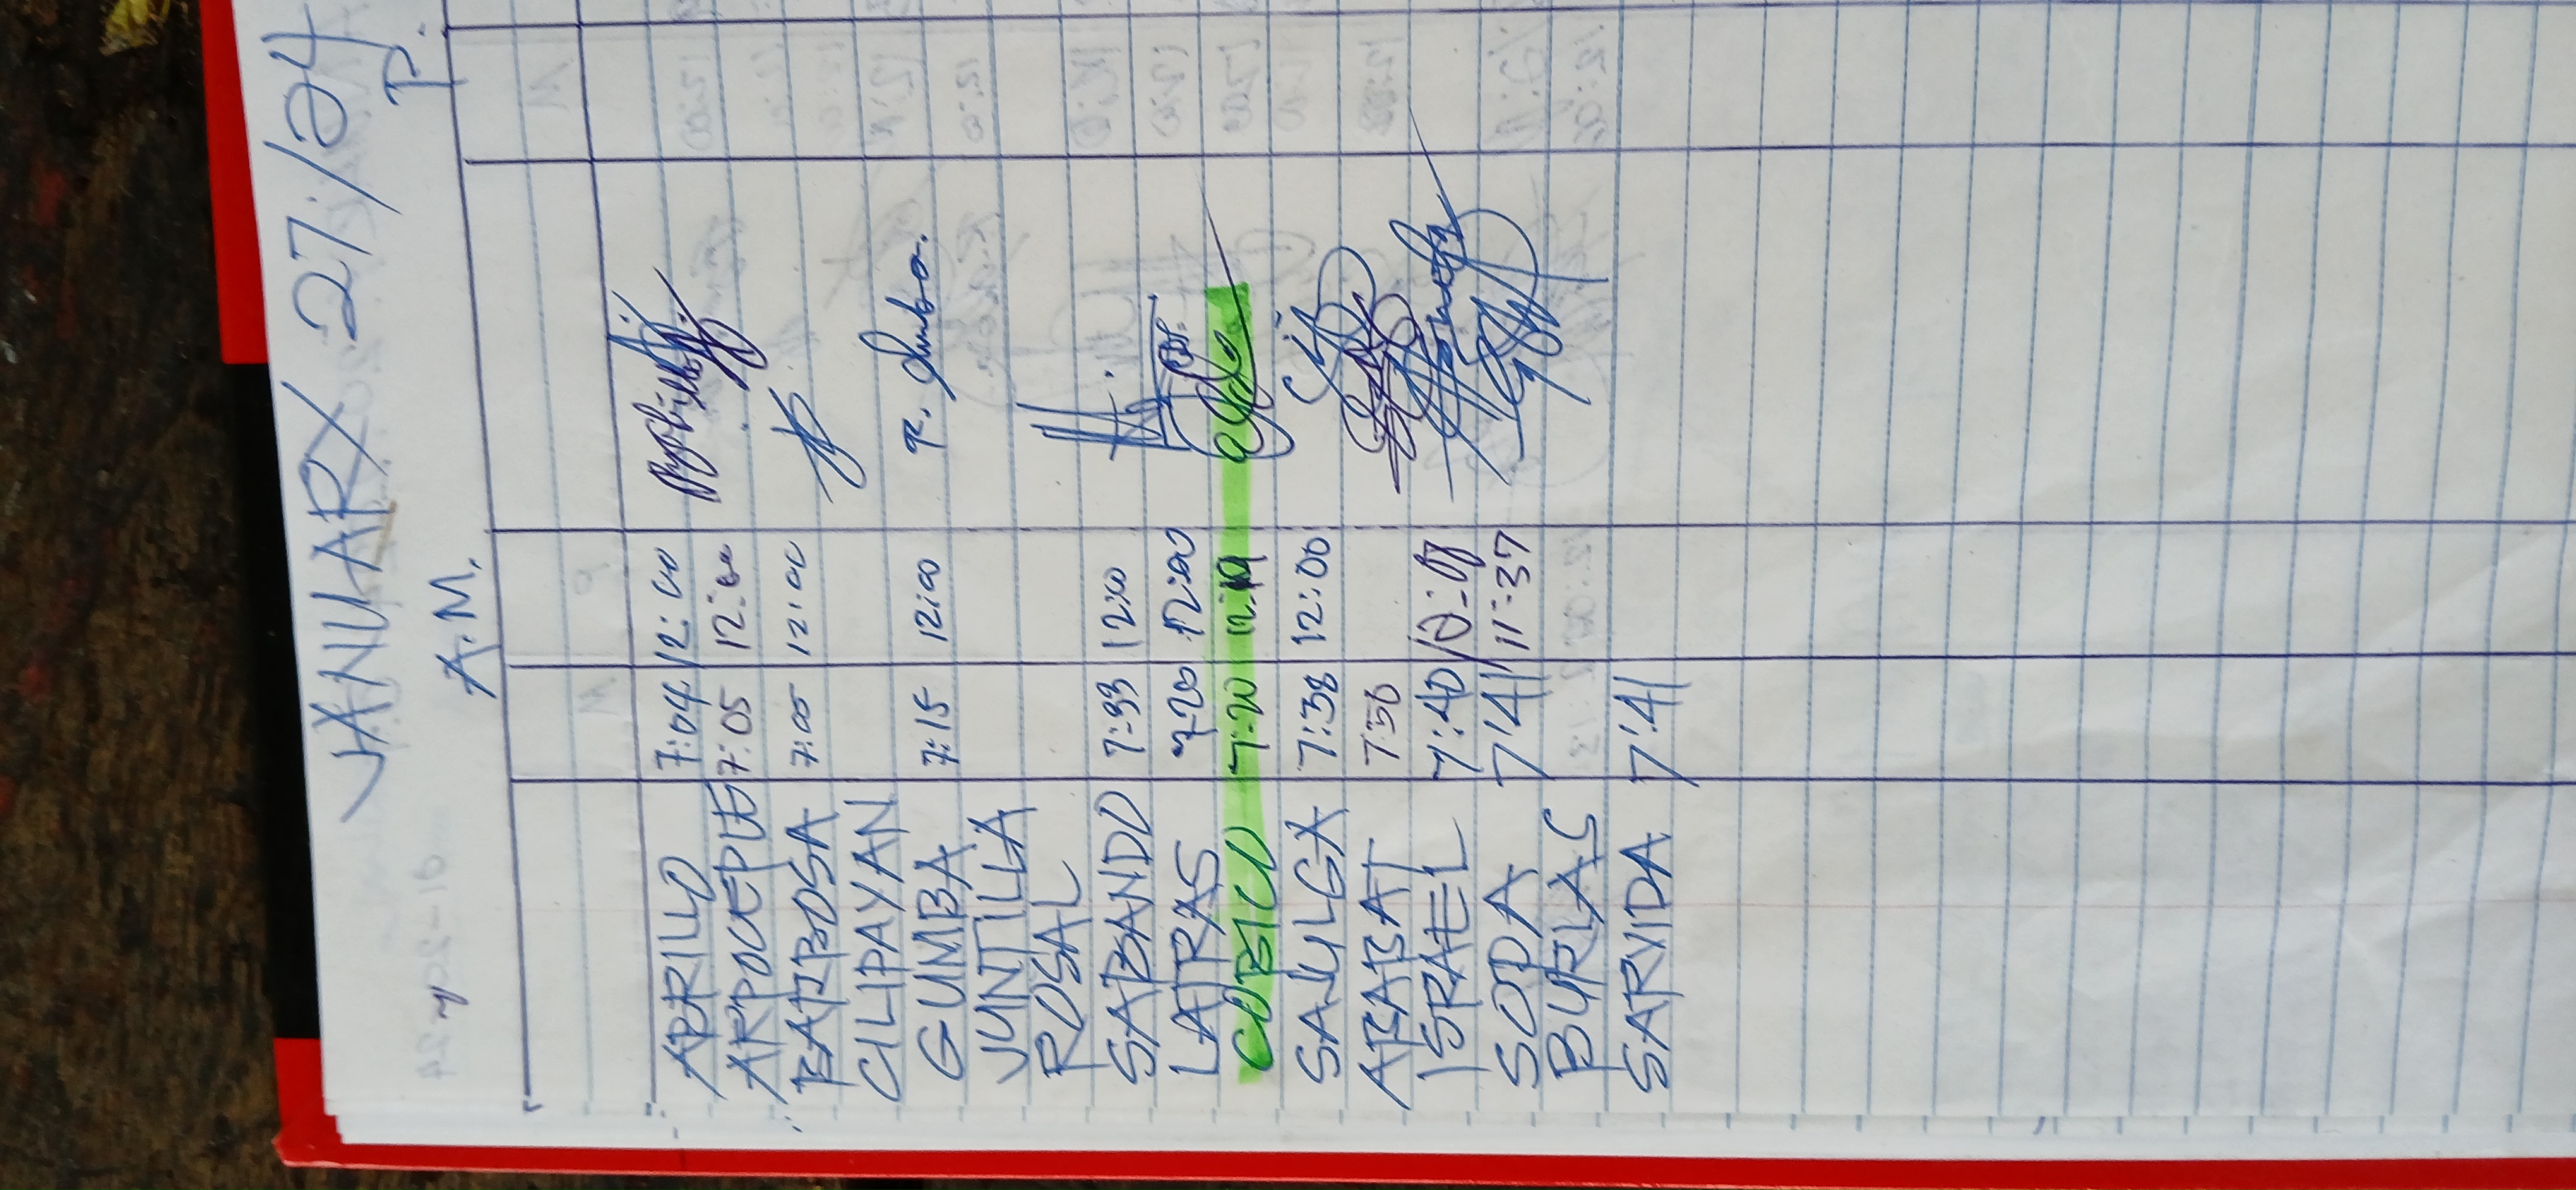 JANUARY 27, / 24
A.M. P.
ABRILLO 7:04 12:00
ARPOCEPLE 7:05 12:00
BARBOSA 7:05 12:00
CILIPAYAN
GUMBA 7:15 12:00
JUNTILLA
ROSAL
SABANDO 7:33 12:00
LATRAS 7:20 12:00
COBICO 7:20
SAJULGA 7:38 12:00
ABABAT 7:50
ISRAEL 7:40
SODA 7:41 11:37
BURLAS
SARVIDA 7:41